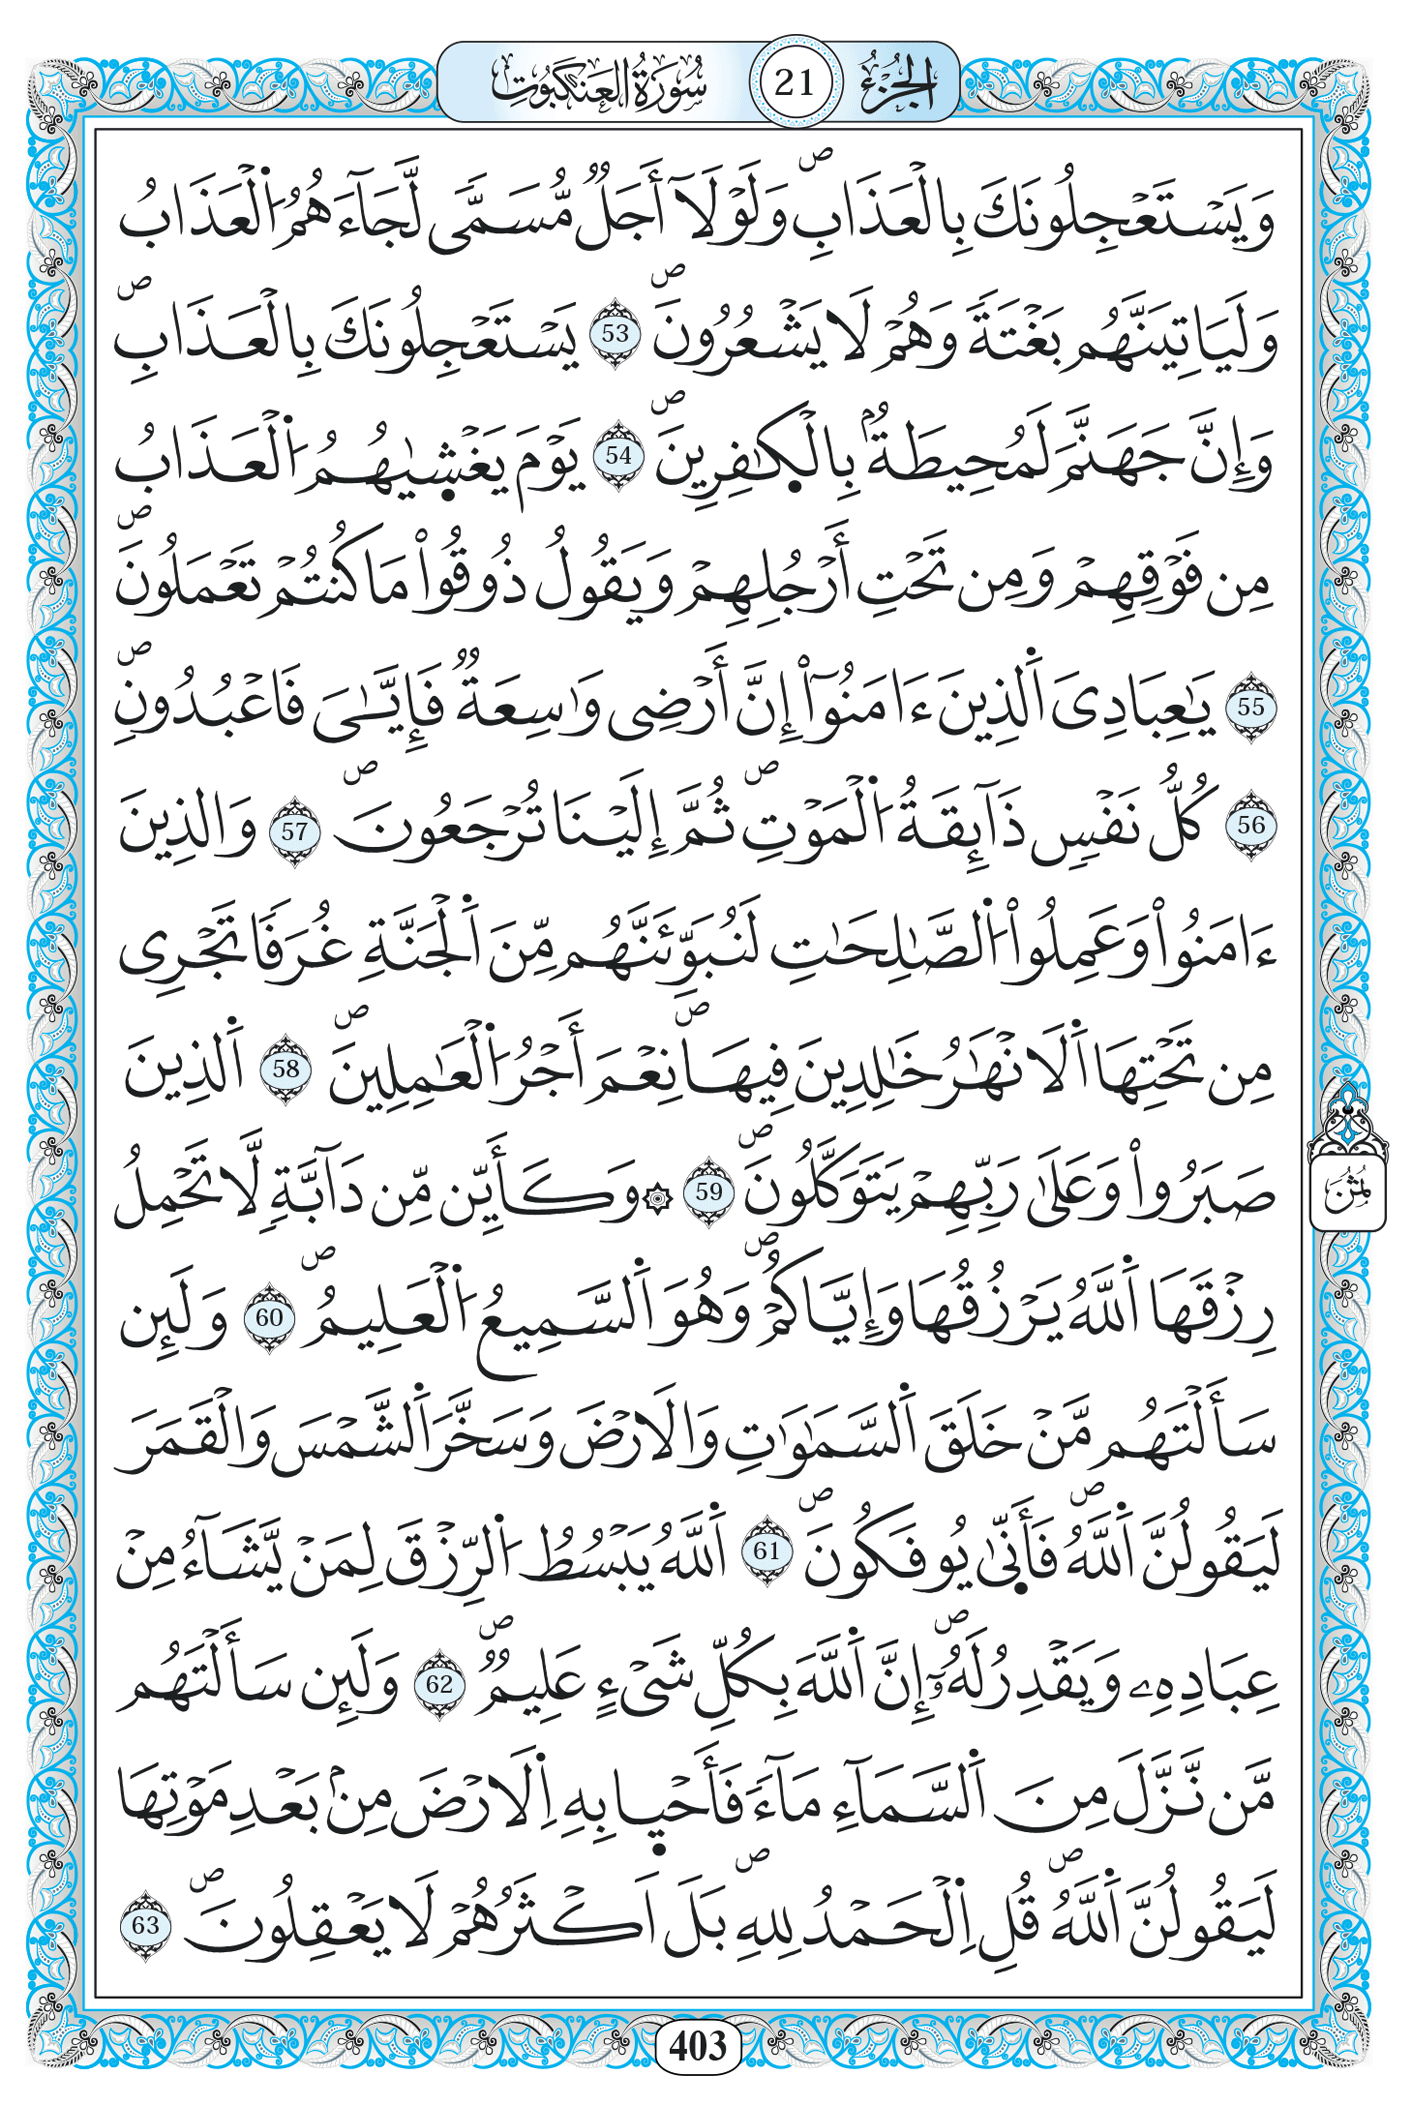 الجزء 21 سورة العنكبوت
وَيَسْتَعْجِلُونَكَ بِالْعَذَابِ ۖ وَلَوْلَآ أَجَلٌ مُّسَمًّى لَّجَآءَهُمُ اُ۬لْعَذَابُ
وَلَيَاتِيَنَّهُم بَغْتَةً وَهُمْ لَا يَشْعُرُونَ ۖ 53 يَسْتَعْجِلُونَكَ بِالْعَذَابِ ۖ
وَإِنَّ جَهَنَّمَ لَمُحِيطَةٌۢ بِالْكٰ۪فِرِينَ ۖ 54 يَوْمَ يَغْش۪يٰهُمُ اُ۬لْعَذَابُ
مِن فَوْقِهِمْ وَمِن تَحْتِ أَرْجُلِهِمْ وَيَقُولُ ذُوقُواْ مَا كُنتُمْ تَعْمَلُونَ ۖ
55 يَٰعِبَادِىَ اَ۬لذِينَ ءَامَنُوٓاْ إِنَّ أَرْضِى وَٰسِعَةٌ فَإِيَّٰىَ فَاعْبُدُونِ ۖ
56 كُلُّ نَفْسٍ ذَآئِقَةُ اُ۬لْمَوْتِ ۖ ثُمَّ إِلَيْنَا تُرْجَعُونَ ۖ 57 وَالذِينَ
ءَامَنُواْ وَعَمِلُواْ اُ۬لصَّٰلِحَٰتِ لَنُبَوِّئَنَّهُم مِّنَ اَ۬لْجَنَّةِ غُرَفًا تَجْرِى
مِن تَحْتِهَا اَ۬لَانْهَٰرُ خَٰلِدِينَ فِيهَا ۖ نِعْمَ أَجْرُ اُ۬لْعَٰمِلِينَ ۖ 58 اَ۬لذِينَ
صَبَرُواْ وَعَلَىٰ رَبِّهِمْ يَتَوَكَّلُونَ ۖ 59 ۞ وَكَأَيِّن مِّن دَآبَّةٍ لَّا تَحْمِلُ
رِزْقَهَا اَ۬للَّهُ يَرْزُقُهَا وَإِيَّاكُمْ ۖ وَهُوَ اَ۬لسَّمِيعُ اُ۬لْعَلِيمُ ۖ 60 وَلَئِن
سَأَلْتَهُم مَّنْ خَلَقَ اَ۬لسَّمَٰوَٰتِ وَالَارْضَ وَسَخَّرَ اَ۬لشَّمْسَ وَالْقَمَرَ
لَيَقُولُنَّ اَ۬للَّهُ ۖ فَأَنّ۪يٰ يُوفَكُونَ ۖ 61 اَ۬للَّهُ يَبْسُطُ اُ۬لرِّزْقَ لِمَنْ يَّشَآءُ مِنْ
عِبَادِهِۦ وَيَقْدِرُ لَهُۥٓ ۖ إِنَّ اَ۬للَّهَ بِكُلِّ شَىْءٍ عَلِيمٌ ۖ 62 وَلَئِن سَأَلْتَهُم
مَّن نَّزَّلَ مِنَ اَ۬لسَّمَآءِ مَآءً فَأَحْي۪ا بِهِ اِ۬لَارْضَ مِنۢ بَعْدِ مَوْتِهَا
لَيَقُولُنَّ اَ۬للَّهُ ۖ قُلِ اِ۬لْحَمْدُ لِلهِ ۖ بَلَ اَكْثَرُهُمْ لَا يَعْقِلُونَ ۖ 63
ثمن
403